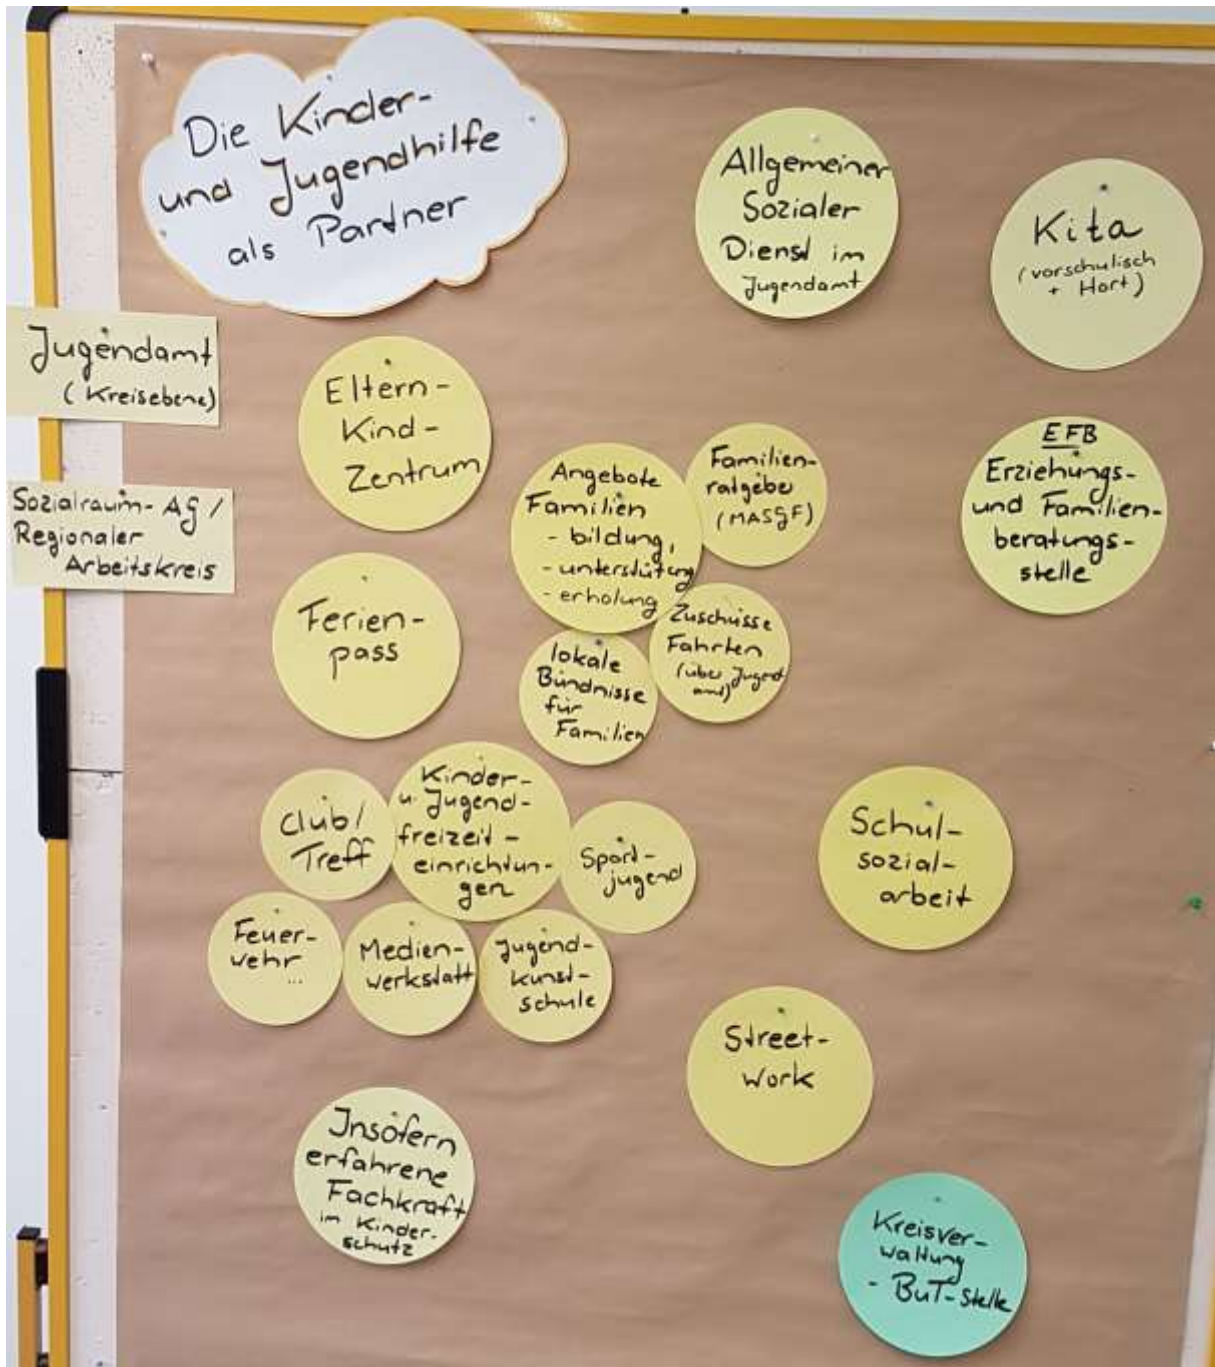 Die Kinder-
und Jugendhilfe
als Partner
Allgemeiner
Sozialer
Dienst im
Jugendamt
Kita
(vorschulisch
+ Hort)
Jugendamt
(Kreisebene)
Sozialraum-AG/
Regionaler
Arbeitskreis
Eltern-
Kind-
Zentrum
Angebote
Familien
- bildung,
- unterstützung
- erholung
Familien-
ratgeber
(MASGF)
EFB
Erziehungs-
und Familien-
beratungs-
stelle
Ferien-
pass
lokale
Bündnisse
für
Familien
Zuschüsse
Fahrten
(über Jugend
amt)
Club/
Treff
Kinder-
u. Jugend-
freizeit-
einrichtun-
gen
Sport-
jugend
Schul-
sozial-
arbeit
Feuer-
wehr
...
Medien-
werkstatt
Jugend-
kunst-
schule
Street-
work
Insofern
erfahrene
Fachkraft
im Kinder-
schutz
Kreisver-
waltung
- BuT-Stelle